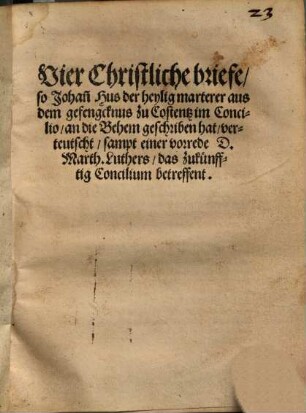 23
Vier Christliche briefe/
so Johañ Hus der heylig marterer aus
dem gefengcknus zů Costentz im Conci-
lio/an die Behem geschriben hat/ver-
teutscht/sampt einer vorrede D.
Marth. Luthers/das zůkünff-
tig Concilium betreffent.